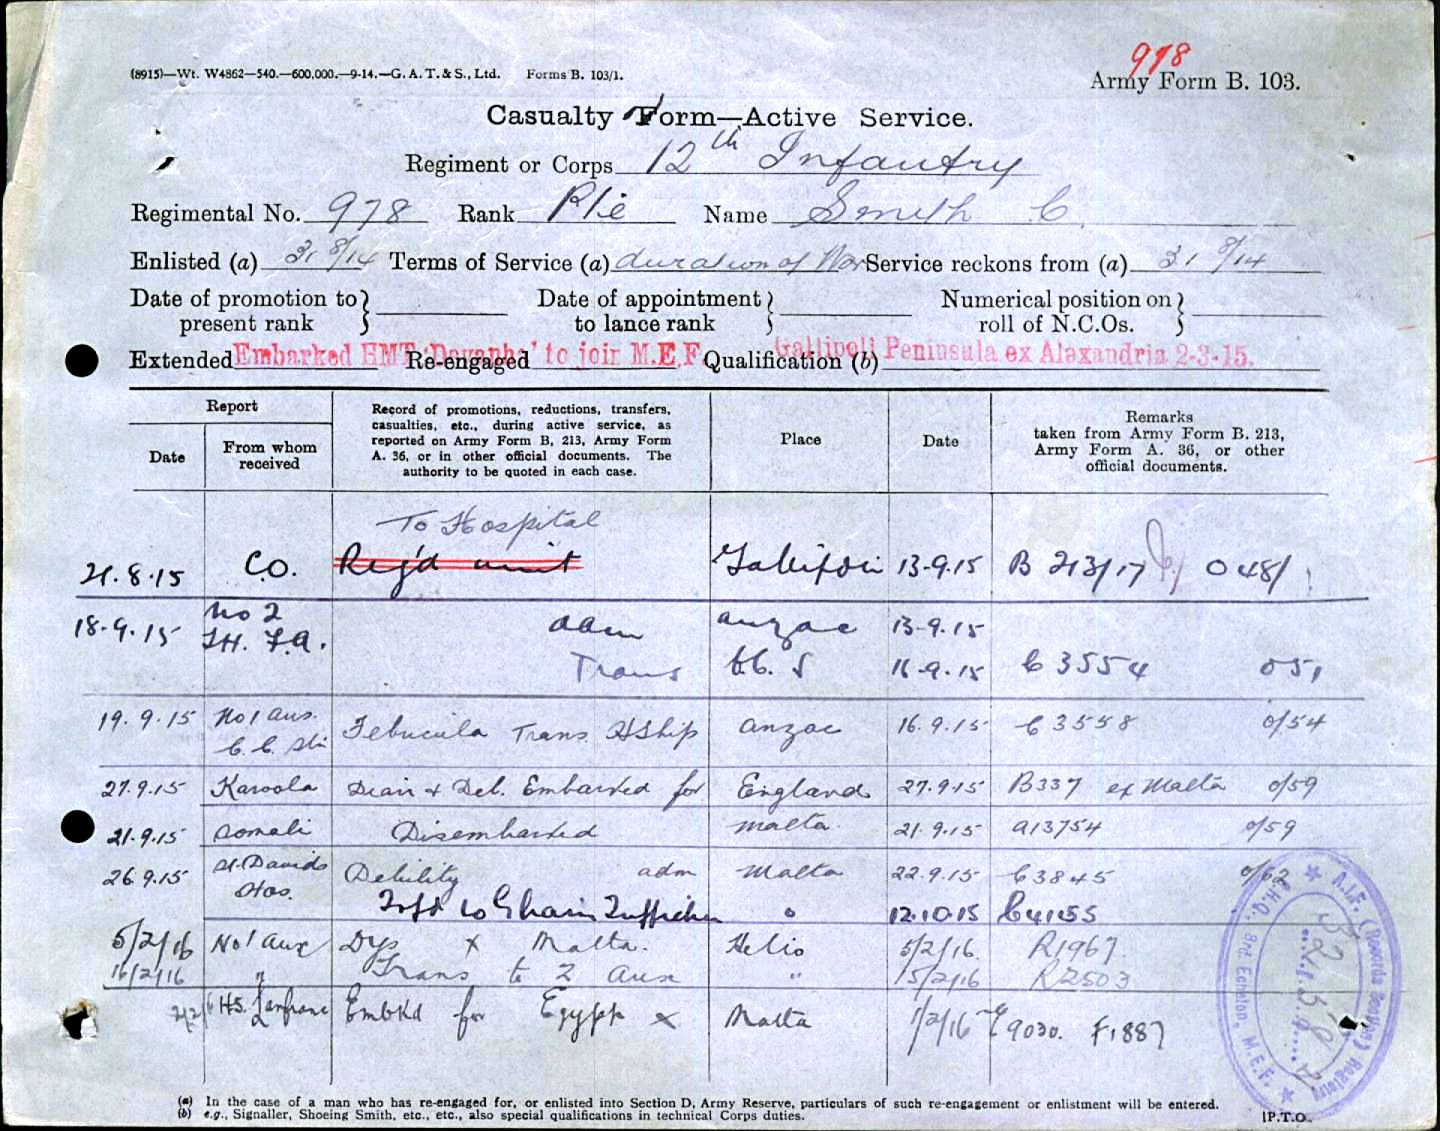 978
(8915)—Wt. W4862—540.—600,000.—9-14.—G. A. T. & S., Ltd. Forms B. 103/1.
Army Form B. 103.
Casualty Form—Active Service.
Regiment or Corps 12th Infantry
Regimental No. 978 Rank Pte Name Smith C
Enlisted (a) 31 8/14 Terms of Service (a) duration of War Service reckons from (a) 31 8/14
Date of promotion to present rank Date of appointment to lance rank Numerical position on roll of N.C.Os.
Extended Re-engaged Qualification (b)
Embarked HMT 'Devanha' to join M.E.F. Gallipoli Peninsula ex Alexandria 2-3-15.
Report
Date
From whom received
Record of promotions, reductions, transfers,
casualties, etc., during active service, as
reported on Army Form B. 213, Army Form
A. 36, or in other official documents. The
authority to be quoted in each case.
Place
Date
Remarks
taken from Army Form B. 213,
Army Form A. 36, or other
official documents.
To Hospital
21.8.15 C.O. Rej'd unit Gallipoli 13-9.15 B 213/17 O 48/
18-9.15 No 2 adm anzac 13-9.15
F.A. Trans 16-9.15 C 3554 051
19.9.15 No 1 Aus. C. C. Stn Febricula Trans HShip anzac 16.9.15 C 3558 0/54
27.9.15 Karoola Diarr & Deb. Embarked for England 27.9.15 B337 ex Malta 0/59
21.9.15 Somali Disembarked Malta 21.9.15 A13754 0/59
26.9.15 St. Davids Hos. Debility adm Malta 22.9.15 C3845 0/62
Tsfd to Ghain Tuffieha " 12.10.15 C4155
5/2/16 No 1 Aux Dys x Malta. Helio 5/2/16. R1967
16/2/16 " Trans to 2 Aux " 15/2/16 R2503
HS. Lanfranc Embkd for Egypt x Malta 1/2/16 E 9030. F1887
A.I.F. (Records Section) Registry
G.H.Q., 3rd. Echelon, M.E.F.
(a) In the case of a man who has re-engaged for, or enlisted into Section D, Army Reserve, particulars of such re-engagement or enlistment will be entered.
(b) e.g., Signaller, Shoeing Smith, etc., etc., also special qualifications in technical Corps duties.
[P.T.O.